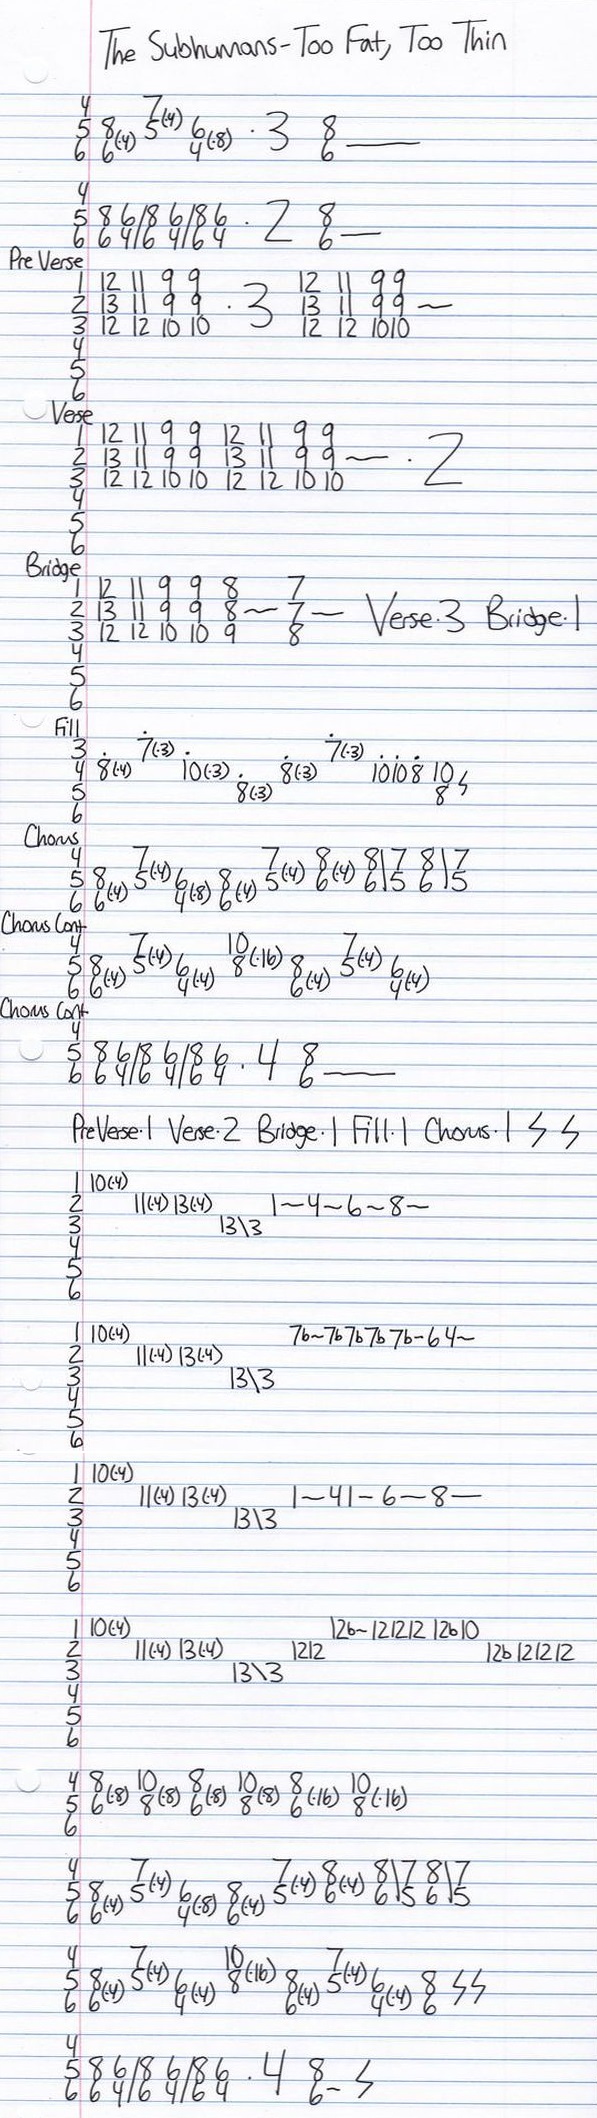 The Subhumans-Too Fat, Too Thin
4 7(·4)
5 8(·4) 5 6(·8) · 3 8
6 6 4 6 ——
4
5 8 6/8 6/8 6 · 2 8
6 6 4/6 4/6 4 6 —
Pre Verse
1 12 11 9 9 12 11 9 9
2 13 11 9 9 · 3 13 11 9 9 ~
3 12 12 10 10 12 12 10 10
4
5
6
Verse
1 12 11 9 9 12 11 9 9
2 13 11 9 9 13 11 9 9 — · 2
3 12 12 10 10 12 12 10 10
4
5
6
Bridge
1 12 11 9 9 8 7
2 13 11 9 9 8 — 7 — Verse·3 Bridge·1
3 12 12 10 10 9 8
4
5
6
Fill
3 7(·3) 7(·3)
4 8(·4) 10(·3) 8(·3) 10 10 8 10
5 8(·3) 8
6
Chorus
4 7(·4) 7(·4) 8(·4) 8\7 8\7
5 8(·4) 5 6(·8) 8(·4) 5 6 6\5 6\5
6 6 4 6
Chorus Cont
4 7(·4) 10(·16) 7(·4)
5 8(·4) 5 6(·4) 8 8(·4) 5 6(·4)
6 6 4 6 4
Chorus Cont
4
5 8 6/8 6/8 6 · 4 8
6 6 4/6 4/6 4 6 ——
PreVerse·1 Verse·2 Bridge·1 Fill·1 Chorus·1
1 10(·4)
2 11(·4) 13(·4) 1~4~6~8~
3 13\3
4
5
6
1 10(·4) 7b~7b7b7b7b-64~
2 11(·4) 13(·4)
3 13\3
4
5
6
1 10(·4)
2 11(·4) 13(·4) 1~41-6—8—
3 13\3
4
5
6
1 10(·4) 12b~121212 12b10
2 11(·4) 13(·4) 1212 12b121212
3 13\3
4
5
6
4 8(·8) 10(·8) 8(·8) 10(·8) 8(·16) 10(·16)
5 6 8 6 8 6 8
6
4 7(·4) 7(·4) 8(·4) 8\7 8\7
5 8(·4) 5 6(·8) 8(·4) 5 6 6\5 6\5
6 6 4 6
4 7(·4) 10(·16) 7(·4)
5 8(·4) 5 6(·4) 8 8(·4) 5 6(·4) 8
6 6 4 6 4 6
4
5 8 6/8 6/8 6 · 4 8
6 6 4/6 4/6 4 6-